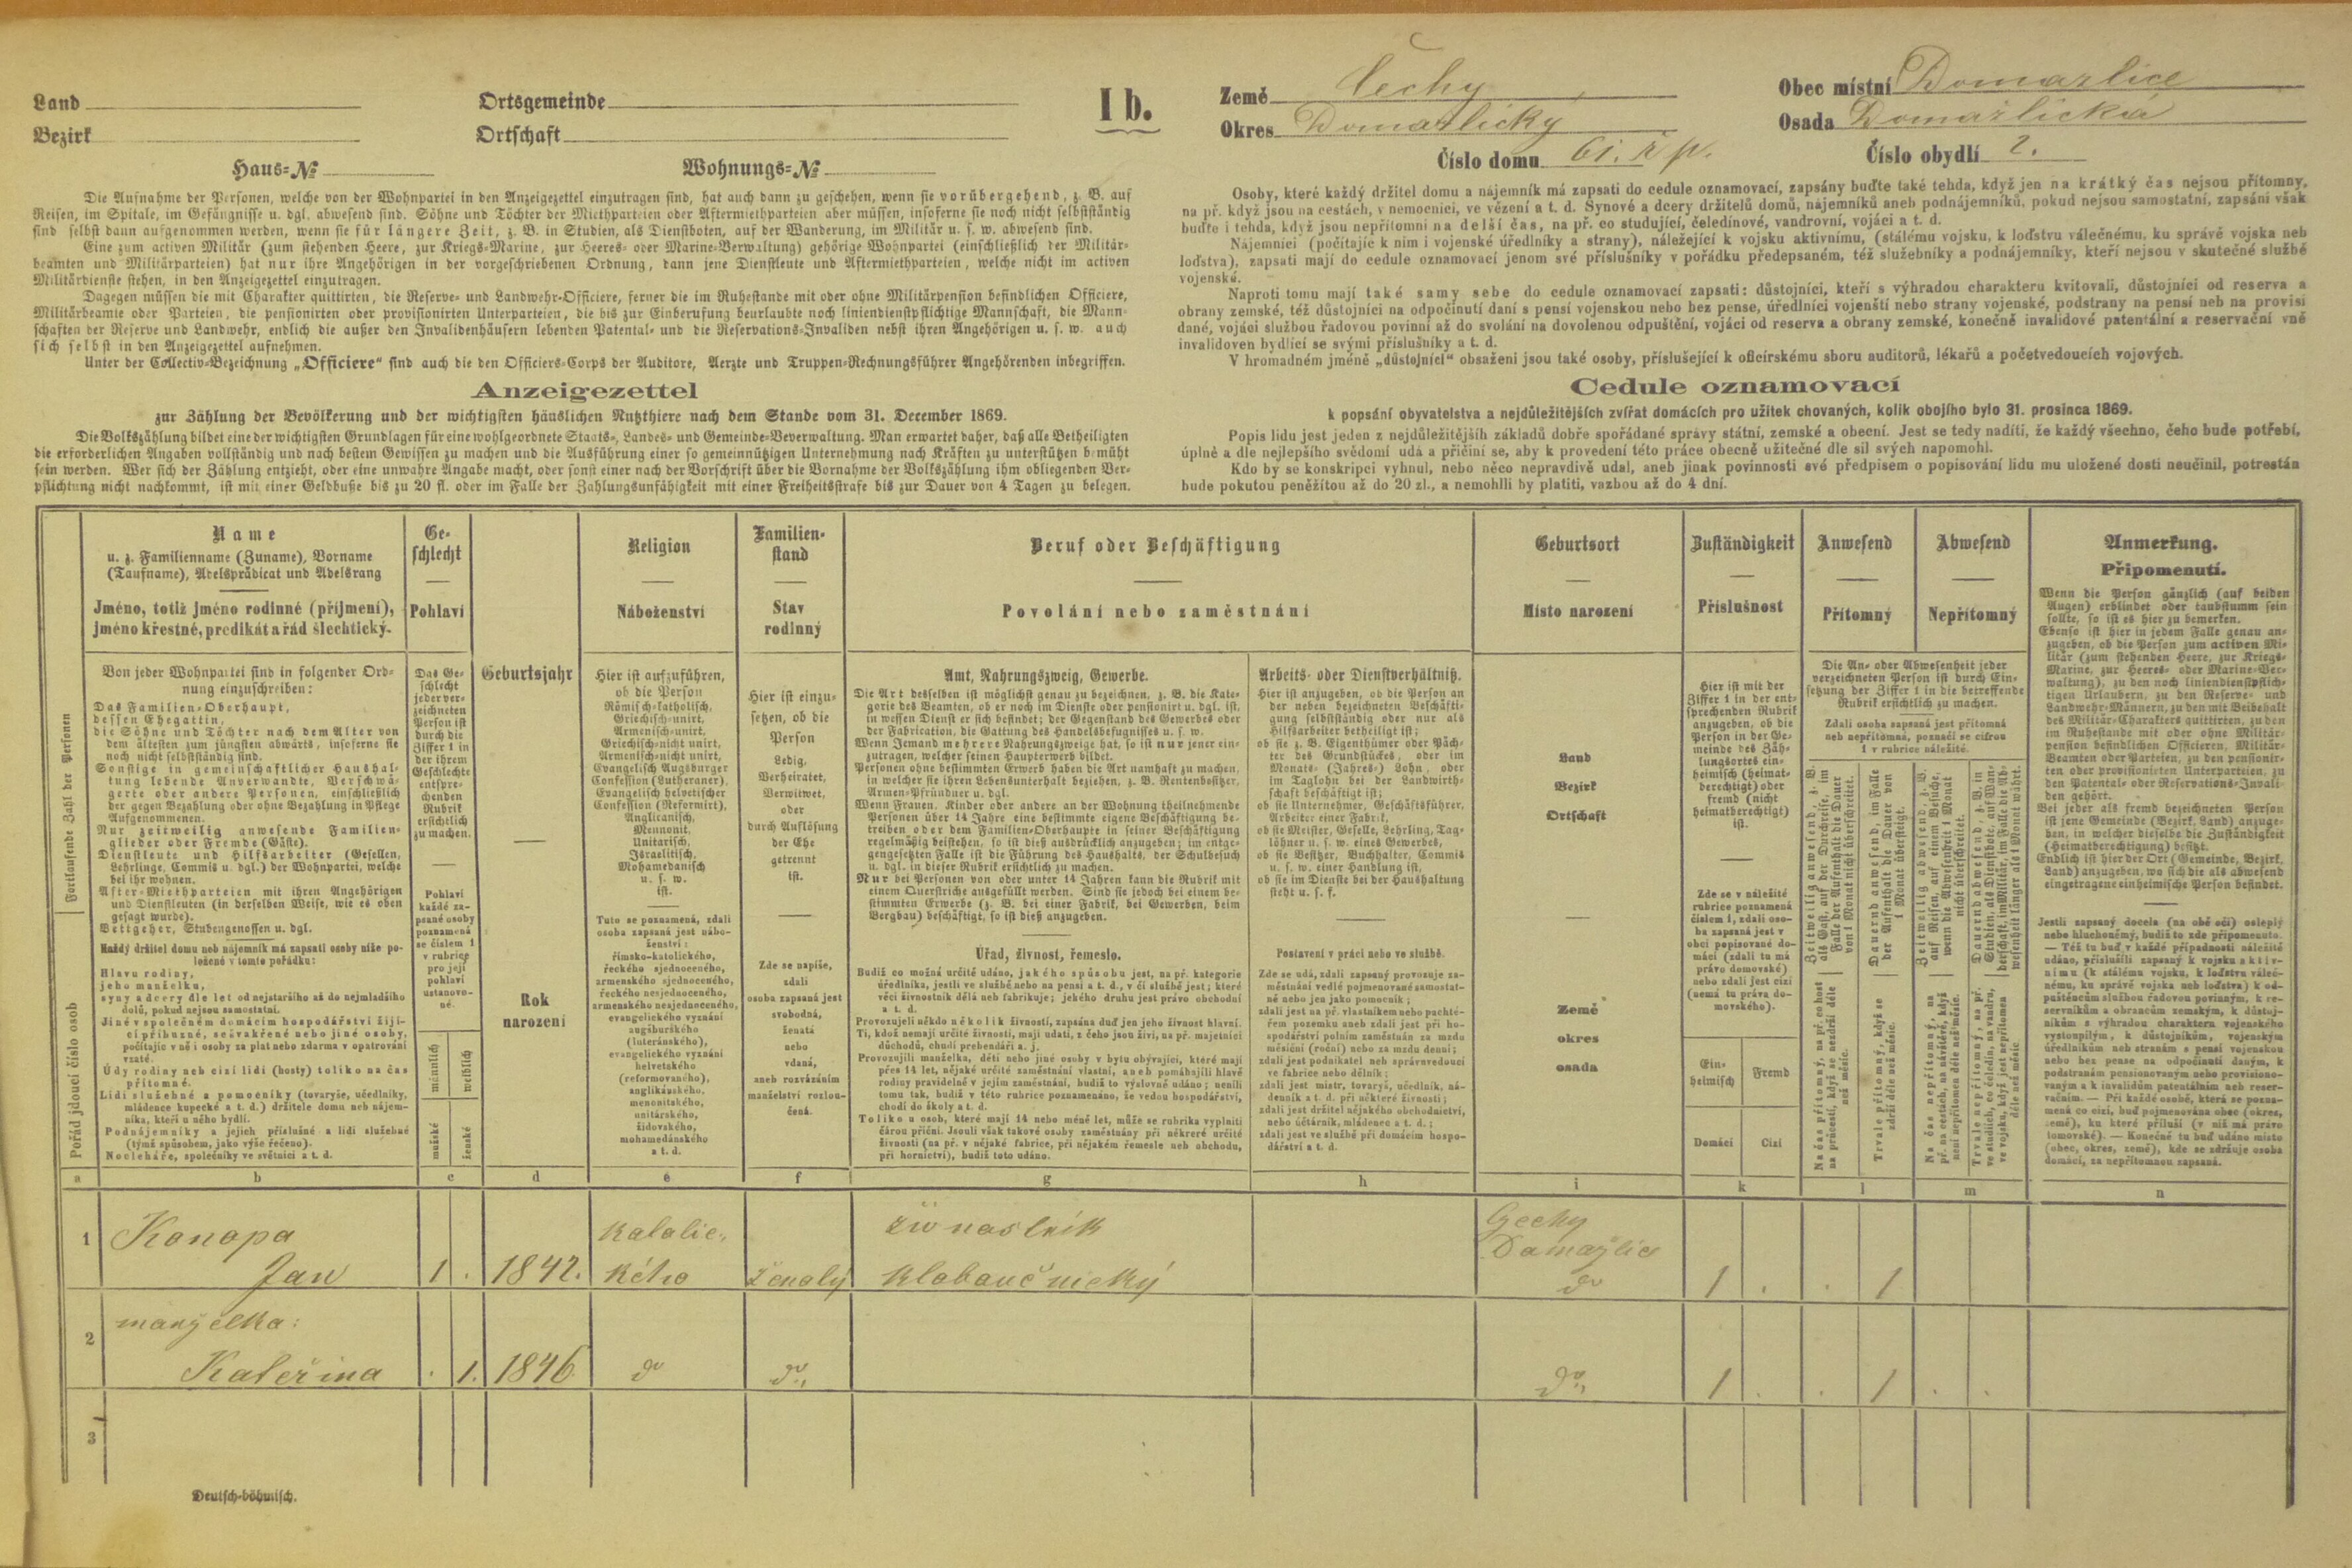 Land
Bezirk
Ortsgemeinde
Ortschaft
Haus-№
Wohnungs-№
I b.
Země Čechy
Okres Domažlický
Obec místní Domazlice
Osada Domažlická
Číslo domu 61. ř p.
Číslo obydlí 2.
Die Aufnahme der Personen, welche von der Wohnpartei in den Anzeigezettel einzutragen sind, hat auch dann zu geschehen, wenn sie vorübergehend, z. B. auf
Reisen, im Spitale, im Gefängnisse u. dgl. abwesend sind. Söhne und Töchter der Miethparteien oder Aftermiethparteien aber müssen, insoferne sie noch nicht selbstständig
sind selbst dann aufgenommen werden, wenn sie für längere Zeit, z. B. in Studien, als Dienstboten, auf der Wanderung, im Militär u. s. w. abwesend sind.
Eine zum activen Militär (zum stehenden Heere, zur Kriegs-Marine, zur Heeres- oder Marine-Verwaltung) gehörige Wohnpartei (einschließlich der Militär-
beamten und Militärparteien) hat nur ihre Angehörigen in der vorgeschriebenen Ordnung, dann jene Dienstleute und Aftermiethparteien, welche nicht im activen
Militärdienste stehen, in den Anzeigezettel einzutragen.
Dagegen müssen die mit Charakter quittirten, die Reserve- und Landwehr-Officiere, ferner die im Ruhestande mit oder ohne Militärpension befindlichen Officiere,
Militärbeamte oder Parteien, die pensionirten oder provisionirten Unterparteien, die bis zur Einberufung beurlaubte noch liniendienstpflichtige Mannschaft, die Mann-
schaften der Reserve und Landwehr, endlich die außer den Invalidenhäusern lebenden Patental- und die Reservations-Invaliden nebst ihren Angehörigen u. s. w. auch
sich selbst in den Anzeigezettel aufnehmen.
Unter der Collectiv-Bezeichnung „Officiere“ sind auch die den Officiers-Corps der Auditore, Aerzte und Truppen-Rechnungsführer Angehörenden inbegriffen.
Anzeigezettel
zur Zählung der Bevölkerung und der wichtigsten häuslichen Nutzthiere nach dem Stande vom 31. December 1869.
Die Volkszählung bildet eine der wichtigsten Grundlagen für eine wohlgeordnete Staats-, Landes- und Gemeinde-Beverwaltung. Man erwartet daher, daß alle Betheiligten
die erforderlichen Angaben vollständig und nach bestem Gewissen zu machen und die Ausführung einer so gemeinnützigen Unternehmung nach Kräften zu unterstützen bemüht
sein werden. Wer sich der Zählung entzieht, oder eine unwahre Angabe macht, oder sonst einer nach der Vorschrift über die Vornahme der Volkszählung ihm obliegenden Ver-
pflichtung nicht nachkommt, ist mit einer Geldbuße bis zu 20 fl. oder im Falle der Zahlungsunfähigkeit mit einer Freiheitsstrafe bis zur Dauer von 4 Tagen zu belegen.
Osoby, které každý držitel domu a nájemník má zapsati do cedule oznamovací, zapsány buďte také tehda, když jen na krátký čas nejsou přítomny,
na př. když jsou na cestách, v nemocnici, ve vězení a t. d. Synové a dcery držitelů domů, nájemníků aneb podnájemníků, pokud nejsou samostatní, zapsáni však
buďte i tehda, když jsou nepřítomni na delší čas, na př. co studující, čeledínové, vandrovní, vojáci a t. d.
Nájemníci (počítajíc k nim i vojenské úředlníky a strany), náležející k vojsku aktivnímu, (stálému vojsku, k loďstvu válečnému, ku správě vojska neb
loďstva), zapsati mají do cedule oznamovací jenom své příslušníky v pořádku předepsaném, též služebníky a podnájemníky, kteří nejsou v skutečné službě
vojenské.
Naproti tomu mají také samy sebe do cedule oznamovací zapsati: důstojníci, kteří s výhradou charakteru kvitovali, důstojníci od reserva a
obrany zemské, též důstojníci na odpočinutí daní s pensí vojenskou nebo bez pense, úředlníci vojenští nebo strany vojenské, podstrany na pensí neb na provisi
dané, vojáci službou řadovou povinni až do svolání na dovolenou odpuštění, vojáci od reserva a obrany zemské, konečně invalidové patentální a reservační vně
invalidoven bydlící se svými příslušníky a t. d.
V hromadném jméně „důstojníci“ obsaženi jsou také osoby, příslušející k oficírskému sboru auditorů, lékařů a početvedoucích vojových.
Cedule oznamovací
k popsání obyvatelstva a nejdůležitějších zvířat domácích pro užitek chovaných, kolik obojího bylo 31. prosinca 1869.
Popis lidu jest jeden z nejdůležitějšíh základů dobře spořádané správy státní, zemské a obecní. Jest se tedy nadíti, že každý všechno, čeho bude potřebí,
úplně a dle nejlepšího svědomí udá a přičiní se, aby k provedení této práce obecně užitečné dle sil svých napomohl.
Kdo by se konskripcí vyhnul, nebo něco nepravdivě udal, aneb jinak povinnosti své předpisem o popisování lidu mu uložené dosti neučinil, potrestán
bude pokutou peněžitou až do 20 zl., a nemohlli by platiti, vazbou až do 4 dní.
Name
u. z. Familienname (Zuname), Vorname
(Taufname), Adelsprädicat und Adelsrang
Jméno, totiž jméno rodinné (příjmení),
jméno křestné, predikát a řád šlechtický.
Ge-
schlecht
Pohlaví
Geburtsjahr
Rok
narození
Religion
Náboženství
Familien-
stand
Stav
rodinný
Beruf oder Beschäftigung
Povolání nebo zaměstnání
Geburtsort
Místo narození
Zuständigkeit
Příslušnost
Anwesend
Přítomný
Abwesend
Nepřítomný
Anmerkung.
Připomenutí.
Fortlaufende Zahl der Personen
Pořád jdoucí číslo osob
Von jeder Wohnpartei sind in folgender Ord-
nung einzuschreiben:
Das Familien-Oberhaupt,
dessen Ehegattin,
die Söhne und Töchter nach dem Alter von
dem ältesten zum jüngsten abwärts, insoferne sie
noch nicht selbstständig sind.
Sonstige in gemeinschaftlicher Haushal-
tung lebende Anverwandte, Verschwä-
gerte oder andere Personen, einschließlich
der gegen Bezahlung oder ohne Bezahlung in Pflege
Aufgenommenen.
Nur zeitweilig anwesende Familien-
glieder oder Fremde (Gäste).
Dienstleute und Hilfsarbeiter (Gesellen,
Lehrlinge, Commis u. dgl.) der Wohnpartei, welche
bei ihr wohnen.
After-Miethparteien mit ihren Angehörigen
und Dienstleuten (in derselben Weise, wie es oben
gesagt wurde).
Bettgeher, Stubengenossen u. dgl.
Každý držitel domu neb nájemník má zapsati osoby níže po-
ložené v tomto pořádku:
Hlavu rodiny,
jeho manželku,
syny a dcery dle let od nejstaršího až do nejmladšího
dolů, pokud nejsou samostatní.
Jiné v společném domácím hospodářství žijí-
cí příbuzné, sešvakřené nebo jiné osoby,
počítajíc v ně i osoby za plat nebo zdarma v opatrování
vzaté.
Údy rodiny neb cizí lidi (hosty) toliko na čas
přítomné.
Lidi služebné a pomocníky (tovaryše, učedlníky,
mládence kupecké a t. d.) držitele domu neb nájem-
níka, kteří u něho bydlí.
Podnájemníky a jejich příslušné a lidi služebné
(týmž spůsobem, jako výše řečeno).
Nocleháře, společníky ve světnici a t. d.
Das Ge-
schlecht
jeder ver-
zeichneten
Person ist
durch die
Ziffer 1 in
der ihrem
Geschlechte
entspre-
chenden
Rubrik
ersichtlich
zu machen.
Pohlaví
každé za-
psané osoby
poznamená
se číslem 1
v rubrice
pro její
pohlaví
ustanove-
né.
männlich
weiblich
mužské
ženské
Hier ist aufzuführen,
ob die Person
Römisch-katholisch,
Griechisch-unirt,
Armenisch-unirt,
Griechisch-nicht unirt,
Armenisch-nicht unirt,
Evangelisch Augsburger
Confession (Lutheraner),
Evangelisch helvetischer
Confession (Reformirt),
Anglicanisch,
Mennonit,
Unitarisch,
Israelitisch,
Mohamedanisch
u. s. w.
ist.
Tuto se poznamená, zdali
osoba zapsaná jest nábo-
ženství:
římsko-katolického,
řeckého sjednoceného,
armenského sjednoceného,
řeckého nesjednoceného,
armenského nesjednoceného,
evangelického vyznání
augšburského
(luteránského),
evangelického vyznání
helvetského
(reformovaného),
anglikánského,
menonitského,
unitárského,
židovského,
mohamedánského
a t. d.
Hier ist einzu-
setzen, ob die
Person
Ledig,
Verheiratet,
Verwitwet,
oder
durch Auflösung
der Ehe
getrennt
ist.
Zde se napíše,
zdali
osoba zapsaná jest
svobodná,
ženatá
nebo
vdaná,
aneb rozvázáním
manželství rozlou-
čená.
Amt, Nahrungszweig, Gewerbe.
Die Art desselben ist möglichst genau zu bezeichnen, z. B. die Kate-
gorie des Beamten, ob er noch im Dienste oder pensionirt u. dgl. ist,
in wessen Dienst er sich befindet; der Gegenstand des Gewerbes oder
der Fabrication, die Gattung des Handelsbefugnisses u. s. w.
Wenn Jemand mehrere Nahrungszweige hat, so ist nur jener ein-
zutragen, welcher seinen Haupterwerb bildet.
Personen ohne bestimmten Erwerb haben die Art namhaft zu machen,
in welcher sie ihren Lebensunterhalt beziehen, z. B. Rentenbesitzer,
Armen-Pfründner u. dgl.
Wenn Frauen, Kinder oder andere an der Wohnung theilnehmende
Personen über 14 Jahre eine bestimmte eigene Beschäftigung be-
treiben oder dem Familien-Oberhaupte in seiner Beschäftigung
regelmäßig beistehen, so ist dieß ausdrücklich anzugeben; im entge-
gengesetzten Falle ist die Führung des Haushalts, der Schulbesuch
u. dgl. in dieser Rubrik ersichtlich zu machen.
Nur bei Personen von oder unter 14 Jahren kann die Rubrik mit
einem Querstriche ausgefüllt werden. Sind sie jedoch bei einem be-
stimmten Erwerbe (z. B. bei einer Fabrik, bei Gewerben, beim
Bergbau) beschäftigt, so ist dieß anzugeben.
Úřad, živnost, řemeslo.
Budiž co možná určitě udáno, jakého spůsobu jest, na př. kategorie
úředlníka, jestli ve službě nebo na pensi a t. d., v čí službě jest; které
věci živnostník dělá neb fabrikuje; jekého druhu jest právo obchodní
a t. d.
Provozujeli někdo několik živností, zapsána duď jen jeho živnost hlavní.
Ti, kdož nemají určité živnosti, mají udati, z čeho jsou živi, na př. majetníci
důchodů, chudí prebendáři a. j.
Provozujíli manželka, děti nebo jiné osoby v bytu obývající, které mají
přes 14 let, nějaké určité zaměstnání vlastní, aneb pomáhajíli hlavě
rodiny pravidelně v jejím zaměstnání, budiž to výslovně udáno; neníli
tomu tak, budiž v této rubrice poznamenáno, že vedou hospodářství,
chodí do školy a t. d.
Toliko u osob, které mají 14 nebo méně let, může se rubrika vyplniti
čárou příční. Jsouli však takové osoby zaměstnány při někreré určité
živnosti (na př. v nějaké fabrice, při nějakém řemesle neb obchodu,
při hornictví), budiž toto udáno.
Arbeits- oder Dienstverhältniß.
Hier ist anzugeben, ob die Person an
der neben bezeichneten Beschäfti-
gung selbstständig oder nur als
Hilfsarbeiter betheiligt ist;
ob sie z. B. Eigenthümer oder Päch-
ter des Grundstückes, oder im
Monats- (Jahres-) Lohn, oder
im Taglohn bei der Landwirth-
schaft beschäftigt ist;
ob sie Unternehmer, Geschäftsführer,
Arbeiter einer Fabrik,
ob sie Meister, Geselle, Lehrling, Tag-
löhner u. s. w. eines Gewerbes,
ob sie Besitzer, Buchhalter, Commis
u. s. w. einer Handlung ist,
ob sie im Dienste bei der Haushaltung
steht u. s. f.
Postavení v práci nebo ve službě.
Zde se udá, zdali zapsaný provozuje za-
městnání vedlé pojmenované samostat-
ně nebo jen jako pomocník;
zdali jest na př. vlastníkem nebo pachté-
řem pozemku aneb zdali jest při ho-
spodářství polním zaměstnán za mzdu
měsíční (roční) nebo za mzdu denní;
zdali jest podnikatel neb správuvedoucí
ve fabrice nebo dělník;
zdali jest mistr, tovaryš, učedlník, ná-
denník a t. d. při některé živnosti;
zdali jest držitel nějakého obchodnictví,
nebo účtárník, mládenec a t. d.;
zdali jest ve službě při domácím hospo-
dářství a t. d.
Land
Bezirk
Ortschaft
Země
okres
osada
Hier ist mit der
Ziffer 1 in der ent-
sprechenden Rubrik
anzugeben, ob die
Person in der Ge-
meinde des Zäh-
lungsortes ein-
heimisch (heimat-
berechtigt) oder
fremd (nicht
heimatberechtigt)
ist.
Zde se v náležité
rubrice poznamená
číslem 1, zdali oso-
ba zapsaná jest v
obci popisované do-
mácí (zdali tu má
právo domovské)
nebo zdali jest cizí
(nemá tu práva do-
movského).
Ein-
heimisch
Fremd
Domácí
Cizí
Die An- oder Abwesenheit jeder
verzeichneten Person ist durch Ein-
setzung der Ziffer 1 in die betreffende
Rubrik ersichtlich zu machen.
Zdali osoba zapsaná jest přítomná
neb nepřítomná, poznačí se cifrou
1 v rubrice náležité.
Zeitweilig anwesend, z. B.
als Gast, auf der Durchreise, im
Falle der Aufenthalt die Dauer
von 1 Monat nicht überschreitet.
Dauernd anwesend, im Falle
der Aufenthalt die Dauer von
1 Monat übersteigt.
Zeitweilig abwesend, z. B.
auf Reisen, auf einem Besuche,
wenn die Abwesenheit 1 Monat
nicht überschreitet.
Dauernd abwesend, z. B. in
Studien, als Dienstbote, auf Wan-
derschaft, im Militär, im Falle die Ab-
wesenheit länger als 1 Monat währt.
Na čas přítomný, na př. co host
na průcestí, když se nezdrží déle
než měsíc.
Trvale přítomný, když se
zdrží déle než měsíc.
Na čas nepřítomný, na
př. na cestách, na návštěvě, když
není nepřítomen déle než měsíc.
Trvale nepřítomný, na př.
ve studiích, co čeledín, na vandru,
ve vojsku, když jest nepřítomen
déle než měsíc
Wenn die Person gänzlich (auf beiden
Augen) erblindet oder taubstumm sein
sollte, so ist es hier zu bemerken.
Ebenso ist hier in jedem Falle genau an-
zugeben, ob die Person zum activen Mi-
litär (zum stehenden Heere, zur Kriegs-
Marine, zur Heeres- oder Marine-Ver-
waltung), zu den noch liniendienstpflich-
tigen Urlaubern, zu den Reserve- und
Landwehr-Männern, zu den mit Beibehalt
des Militär-Charakters quittirten, zu den
im Ruhestande mit oder ohne Militär-
pension befindlichen Officieren, Militär-
Beamten oder Parteien, zu den pensionir-
ten oder provisionirten Unterparteien, zu
den Patental- oder Reservations-Invali-
den gehört.
Bei jeder als fremd bezeichneten Person
ist jene Gemeinde (Bezirk, Land) anzuge-
ben, in welcher dieselbe die Zuständigkeit
(Heimatberechtigung) besitzt.
Endlich ist hier der Ort (Gemeinde, Bezirk,
Land) anzugeben, wo sich die als abwesend
eingetragene einheimische Person befindet.
Jestli zapsaný docela (na obě oči) osleplý
nebo hluchoněmý, budiž to zde připomenuto.
— Též tu buď v každé případnosti náležitě
udáno, příslušíli zapsaný k vojsku aktiv-
nímu (k stálému vojsku, k loďstvu váleč-
nému, ku správě vojska neb loďstva) k od-
puštěncům službou řadovou povinným, k re-
servníkům a obrancům zemským, k důstoj-
níkům s výhradou charakteru vojenského
vystouplým, k důstojníkům, vojenským
úředlníkům neb stranám s pensí vojenskou
nebo bez pense na odpočinutí daným, k
podstranám pensionovaným nebo provisiono-
vaným a k invalidům patentálním neb reser-
vačním. — Při každé osobě, která se pozna-
mená co cizí, buď pojmenována obec (okres,
země), ku které přísluší (v níž má právo
domovské). — Konečně tu buď udáno místo
(obec, okres, země), kde se zdržuje osoba
domácí, za nepřítomnou zapsaná.
a b c d e f g h i k l m n
1 Konopa
Jan 1 . 1842. katolic„
kého ženatý živnostník
klobaučnický Čechy
Domažlice
do 1 . . 1
2 manželka:
Kateřina . 1. 1846. do do„ do„ 1 . . 1 . .
3
Deutsch-böhmisch.